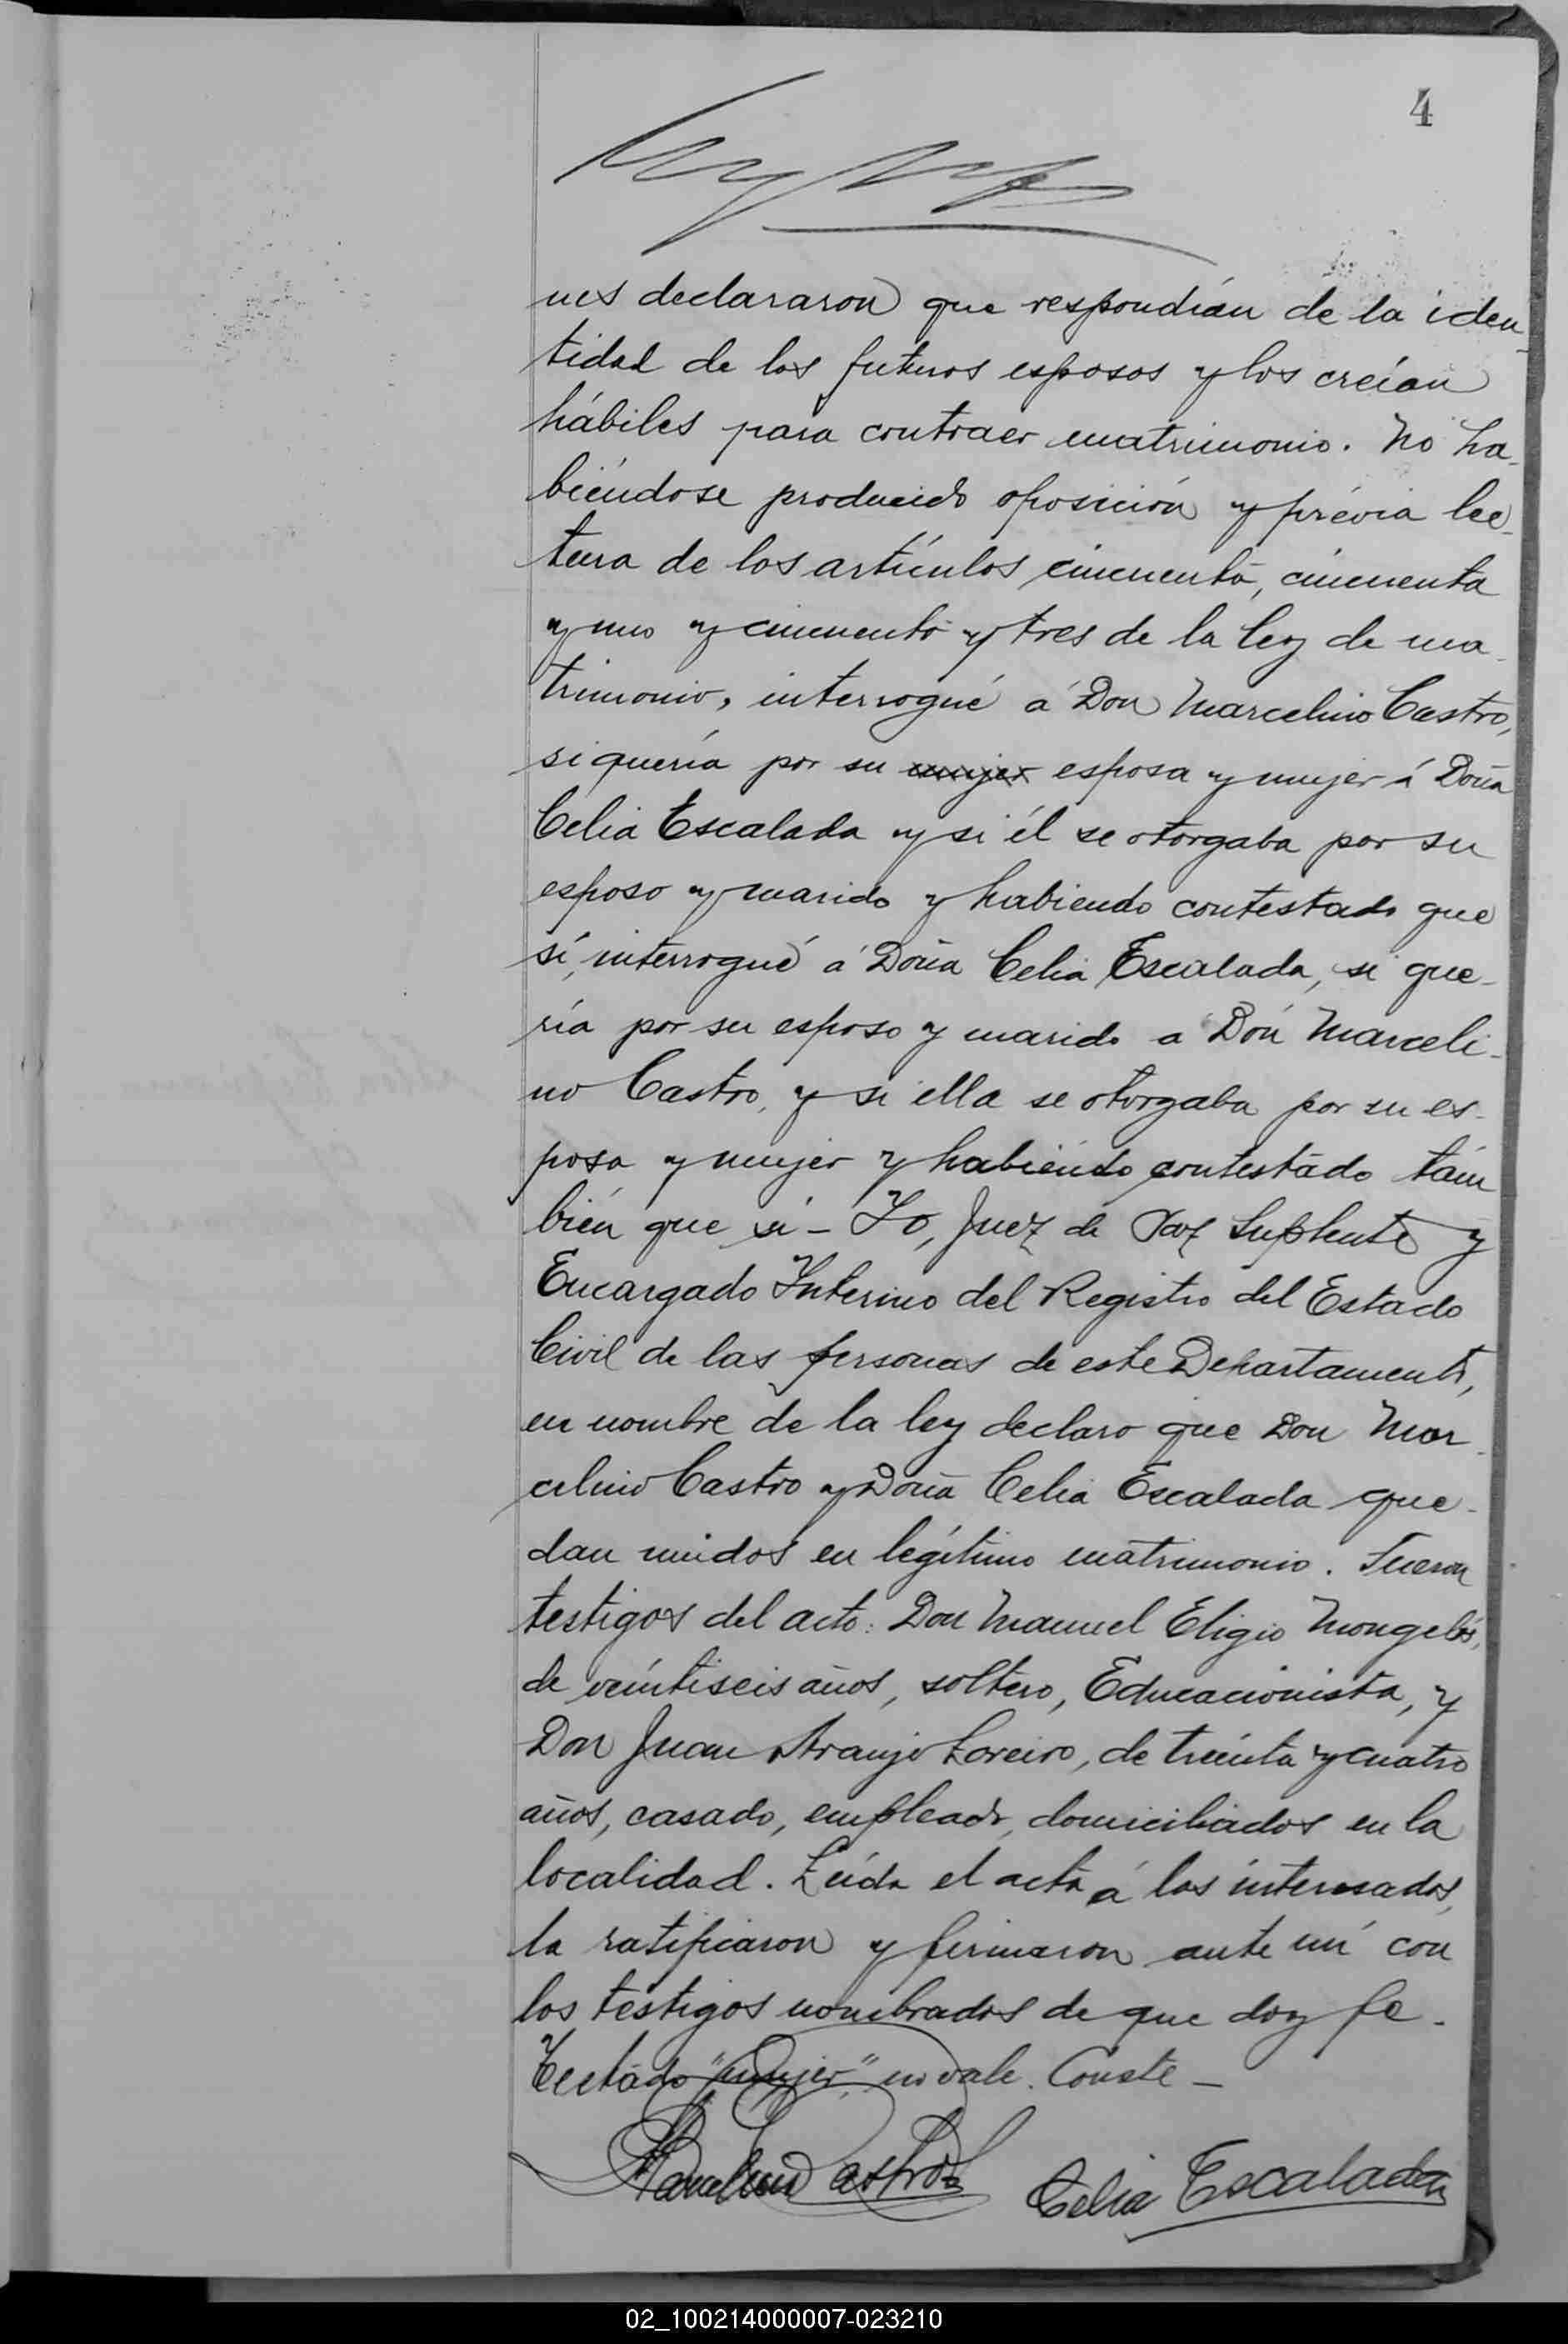 4
nes declararon que respondían de la iden-
tidad de los futuros esposos y los creían
hábiles para contraer matrimonio. No ha-
biéndose producido oposición y prévia lec-
tura de los artículos cincuenta, cincuenta
y uno y cincuenta y tres de la ley de ma-
trimonio, interrogué á Don Marcelino Castro,
si quería por su mujer esposa y mujer á Doña
Celia Escalada y si él se otorgaba por su
esposo y marido y habiendo contestado que
sí, interrogué á Doña Celia Escalada, si que-
ría por su esposo y marido a Don Marceli-
no Castro, y si ella se otorgaba por su es-
posa y mujer y habiendo contestado tam
bién que si - Yo, Juez de Paz Suplente y
Encargado Interino del Registro del Estado
Civil de las personas de este Departamento,
en nombre de la ley declaro que Don Mar-
celino Castro y Doña Celia Escalada que-
dan unidos en legítimo matrimonio. Fueron
testigos del acto: Don Manuel Eligio Mongelós,
de veintiseis años, soltero, Educacionista, y
Don Juan Araujo Loreiro, de treinta y cuatro
años, casado, empleado, domiciliados en la
localidad. Leída el acta á los interesados,
la ratificaron y firmaron ante mí con
los testigos nombrados de que doy fe.
Testado "mujer," no vale. Conste -
Marcelino Castro Celia Escalada
02_100214000007-023210